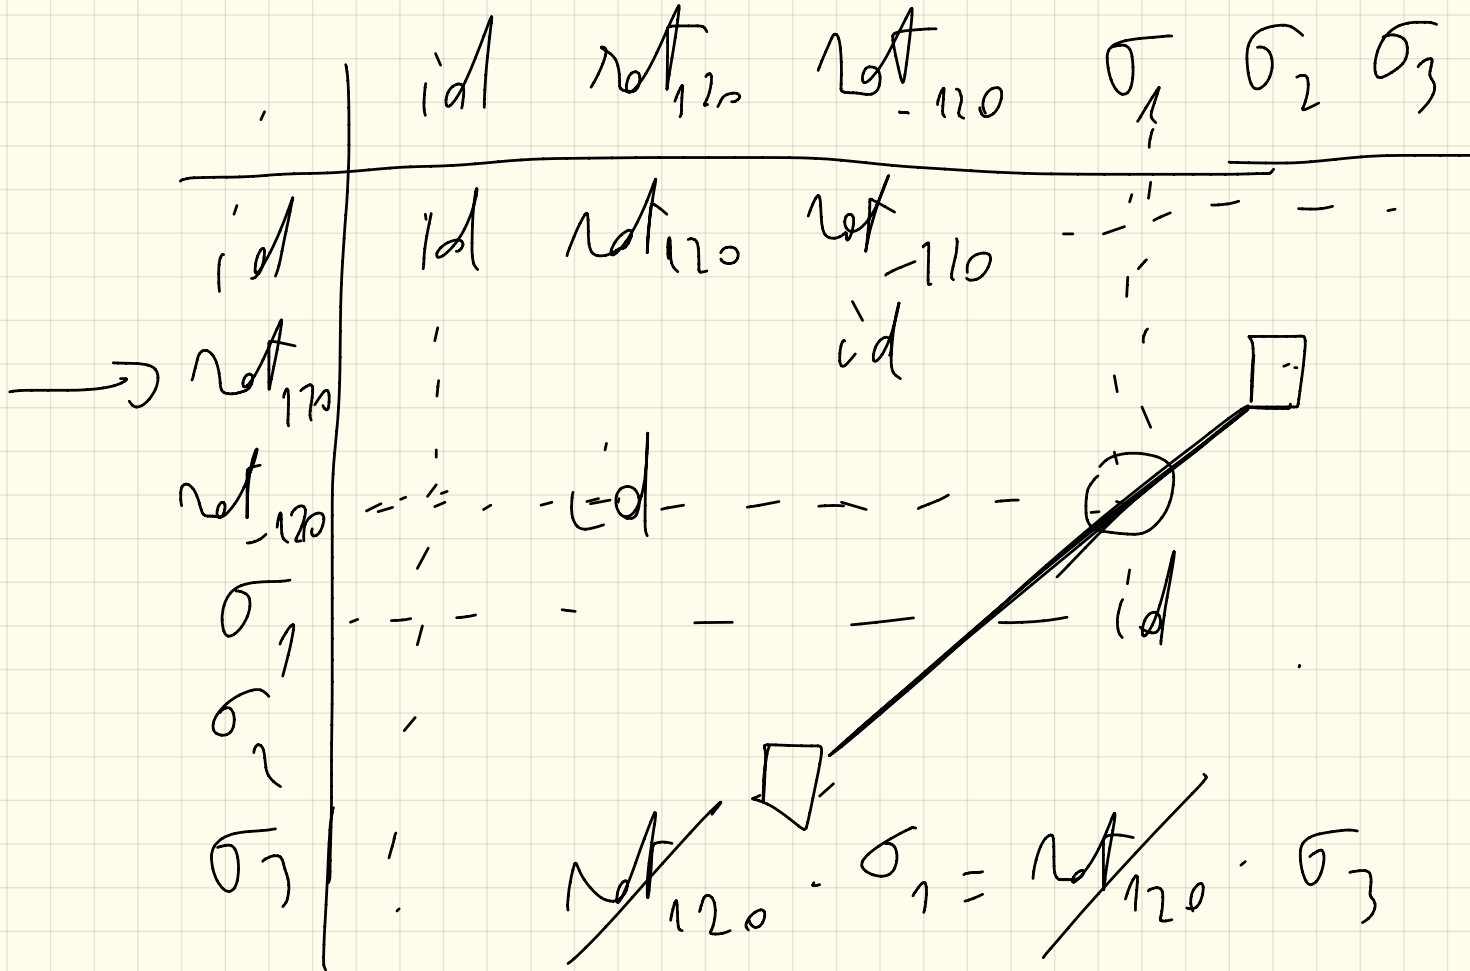 · id rot₁₂₀ rot₋₁₂₀ σ₁ σ₂ σ₃
id id rot₁₂₀ rot₋₁₂₀
rot₁₂₀ id
rot₋₁₂₀ id
σ₁ id
σ₂
σ₃
rot₁₂₀ · σ₁ = rot₁₂₀ · σ₃